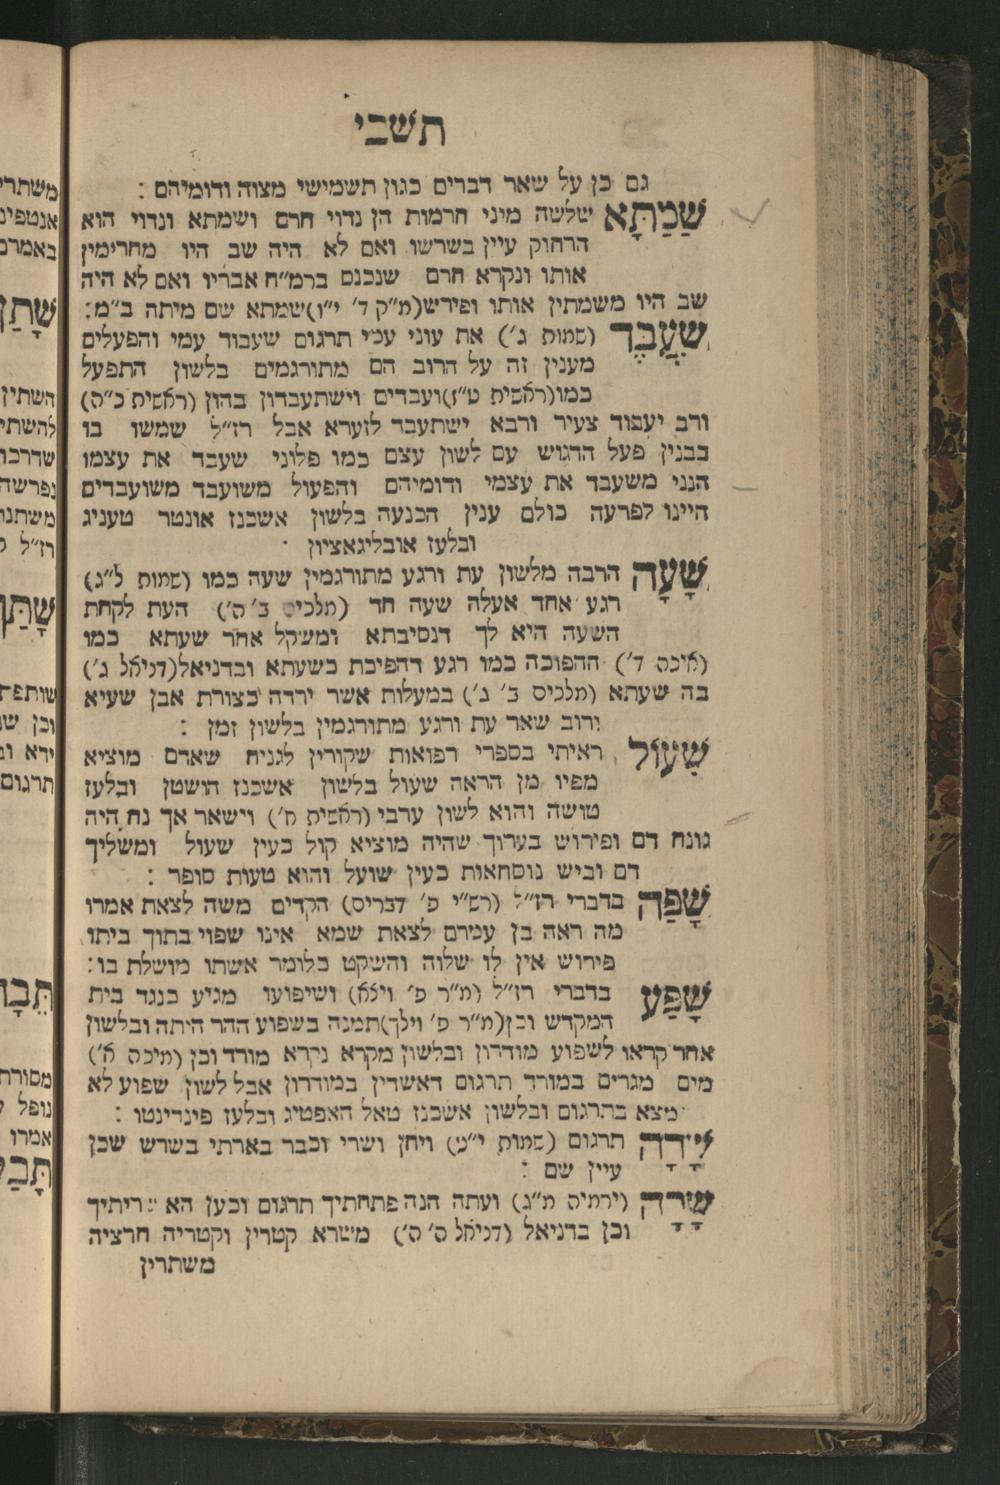 תשבי
גם כן על שאר דברים כגון תשמישי מצוה ודומיהם :
שַׁמַתָּא שלשה מיני חרמות הן נדוי חרם ושמתא ונדוי הוא
הרחוק עיין בשרשו ואם לא היה שב היו מחרימין
אותו ונקרא חרם שנכנס ברמ״ח אבריו ואם לא היה
שב היו משמתין אותו ופירש (מ״ק ד׳ י״ו) שמתא שם מיתה ב״מ :
שִׁעְבֶּד (שמות ג׳) את עוני עמי תרגום שעבוד עמי והפעלים
מענין זה על הרוב הם מתורגמים בלשון התפעל
כמו (ראשית ט״ו) ועבדים וישתעבדון בהון (ראשית כ״ה)
ורב יעבוד צעיר ורבא ישתעבד לזערא אבל רז״ל שמשו בו
בבנין פעל הדגוש עם לשון עצם כמו פלוני שעבד את עצמו
הנני משעבד את עצמי ודומיהם והפעול משועבד משועבדים
היינו לפרעה כולם ענין הכנעה בלשון אשכנז אונטר טעניג
ובלעז אובליגאציון :
שָׁעָה הרבה מלשון עת ורגע מתורגמין שעה כמו (שמות ל״ג)
רגע אחד אעלה שעה חד (מלכים ב׳ ה׳) העת לקחת
השעה היא לך דנסיבתא ומשקל אחר שעתא כמו
(איכה ד׳) ההפוכה כמו רגע דהפיכת בשעתא ובדניאל (דניאל ג׳)
בה שעתא (מלכים ב׳ ) במעלות אשר ירדה בצורת אבן שעיא
ורוב שאר עת ורגע מתורגמין בלשון זמן :
שִׁעוּל ראיתי בספרי רפואות שקורין לגניח שאדם מוציא
מפיו מן הראה שעול בלשון אשכנז הושטן ובלעז
טושה והוא לשון ערבי (ראשית ח׳) וישאר אך נח היה
גונח דם ופירוש בערוך שהיה מוציא קול כעין שעול ומשליך
דם וביש נוסחאות כעין שועל והוא טעות סופר :
שָׁפַה בדברי רז״ל (רש״י פ׳ דברים) הקדים משה לצאת אמרו
מה ראה בן עמרם לצאת שמא אינו שפוי בתוך ביתו
פירוש אין לו שלוה והשקט כלומר אשתו מושלת בו :
שָׁפַּע בדברי רז״ל (מ״ר פ׳ ויצא) ושיפועו מגיע כנגד בית
המקדש וכן (מ״ר פ׳ וילך) תמנה בשפוע ההר היתה ובלשון
אחר קראו לשפוע מודרון ובלשון מקרא נקרא מורד וכן (מיכה א׳)
מים מגרים במורד תרגום דאשדין במודרון אבל לשון שפוע לא
מצא בתרגום ובלשון אשכנז טאל האפטיג ובלעז פינדינטו :
תרגום (שמות ) ויחן ושרי וכבר בארתי בשרש שכן
עיין שם :
שָׁרָה (ירמיה מ״ג) ועתה הנה פתחתיך תרגום וכען הא ריתיך
וכן בדניאל (דניאל ה׳ ה׳) משרא קטרין וקטריה חרציה
משתרין
משתרי
אנטפינ
באמרם
שָׁתַן
השתין
להשתי
שדרכו
נפרשה
משתנו
רז״ל
שָׁתַּן
שותפת
וכן שו
ידא וב
תרגום
תֵּבָה
מסורת
נופל
אמרו